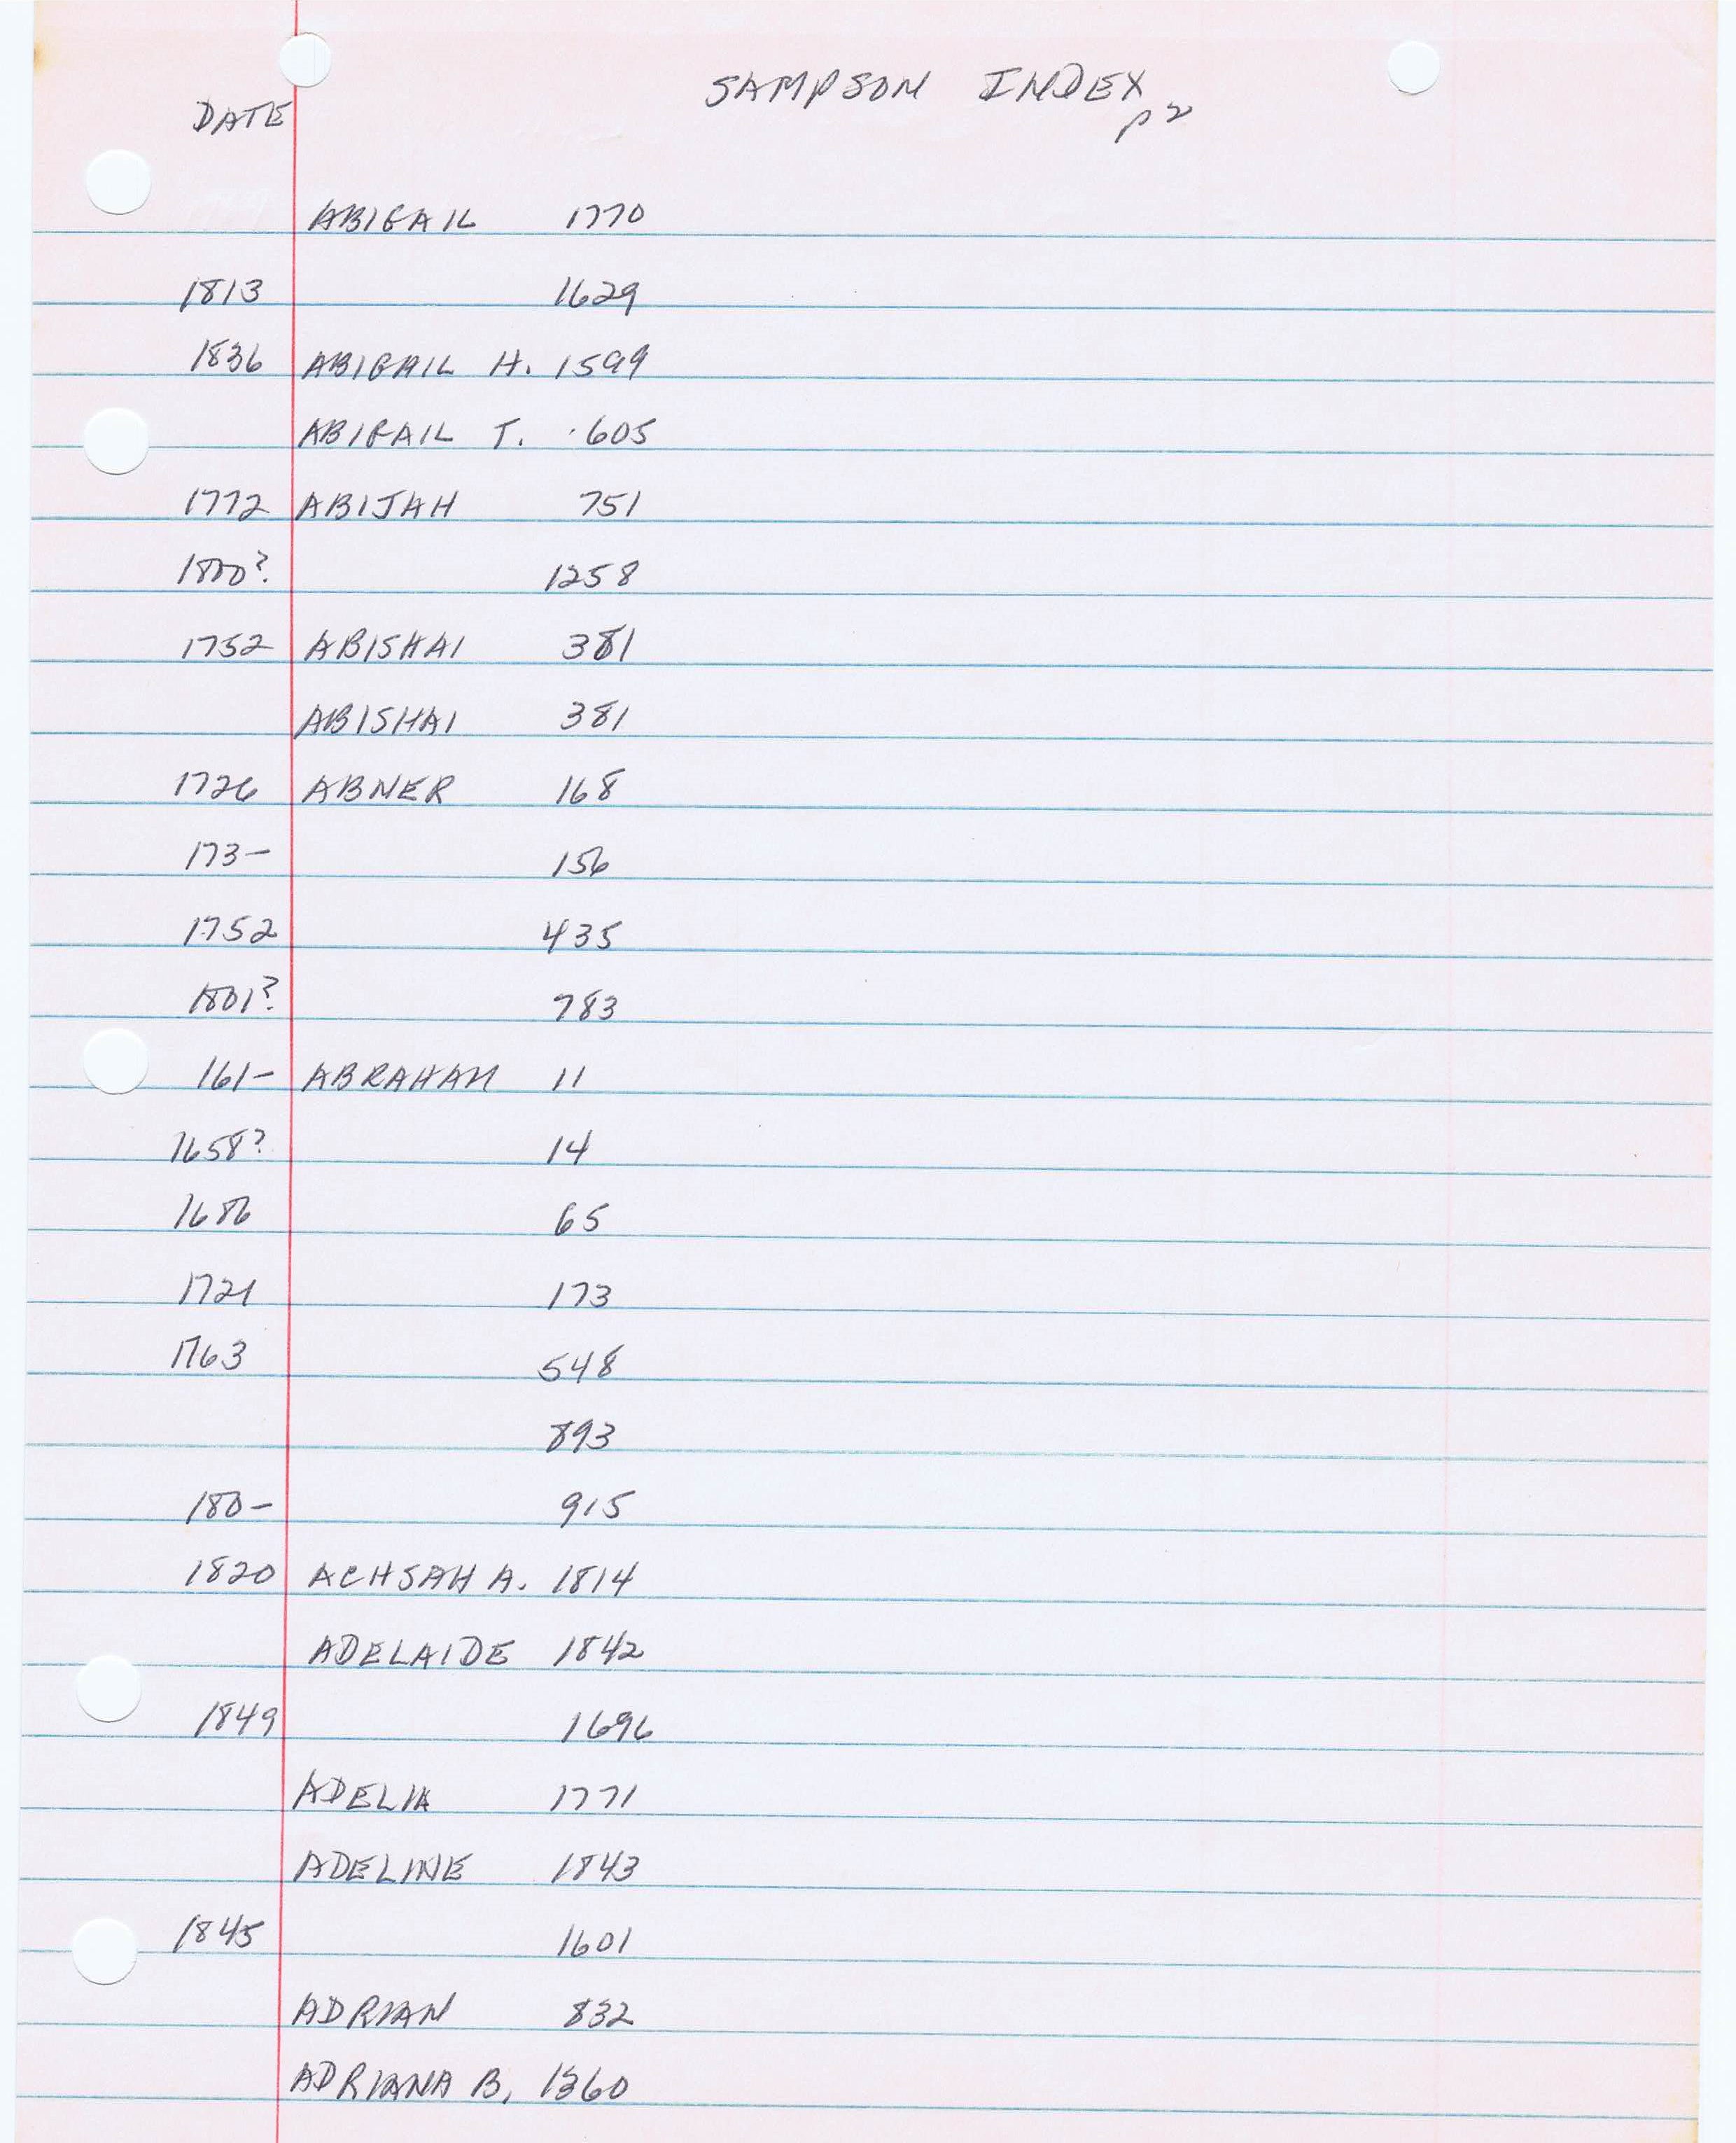 SAMPSON INDEX
DATE p 2
ABIGAIL 1770
1813 1629
1836 ABIGAIL H. 1599
ABIGAIL T. 605
1772 ABIJAH 751
1800? 1258
1752 ABISHAI 381
ABISHAI 381
1726 ABNER 168
173- 156
1752 435
1801? 783
161- ABRAHAM 11
1658? 14
1686 65
1721 173
1763 548
893
180- 915
1820 ACHSAH A. 1814
ADELAIDE 1842
1849 1696
ADELIA 1771
ADELINE 1843
1845 1601
ADRIAN 832
ADRIANA B, 1360